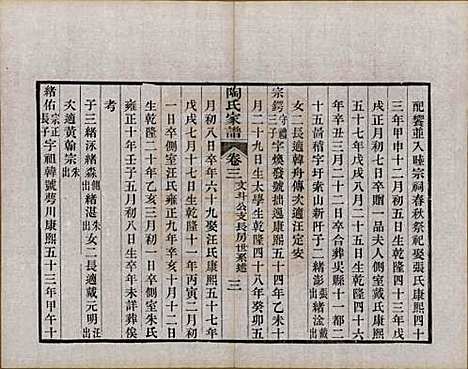 配饗並入睦宗祠春秋祭祀娶張氏康熙四十
三年甲申十二月初五日生乾隆四十三年戊
戌正月初三日卒贈一品夫人側室戴氏康熙
五十年辛卒八月十六日生乾隆四十六
年辛丑八月十二日卒合葬吳縣十一都二
十五啚官字圩索山新阡子二緒彭張出緒淦戴出
女二長適韓舟傳次適汪定安
宗鍔守禮子字煥發號拙逸康熙五十四年乙未十
月二十九日生太學生乾隆四十八年癸卯五
陶氏家譜
卷三
文斗公支長房世系述
三
月初八日卒年六十九娶汪氏康熙五十七年
戊戌七月初八日生乾隆十一年丙寅二月初
一日卒側室汪氏雍正九年辛亥十月十二日
生乾隆二十年乙亥三月初一日卒側室朱氏
雍正十年壬子六月初八日生卒年未詳葬俟
考
子三緒泳緒森側汪出緒湛朱出女二長適戴元明汪出
次適黃翰宗朱出
緒佑宗正長子字祖韓號蕚川康熙五十三年甲午十